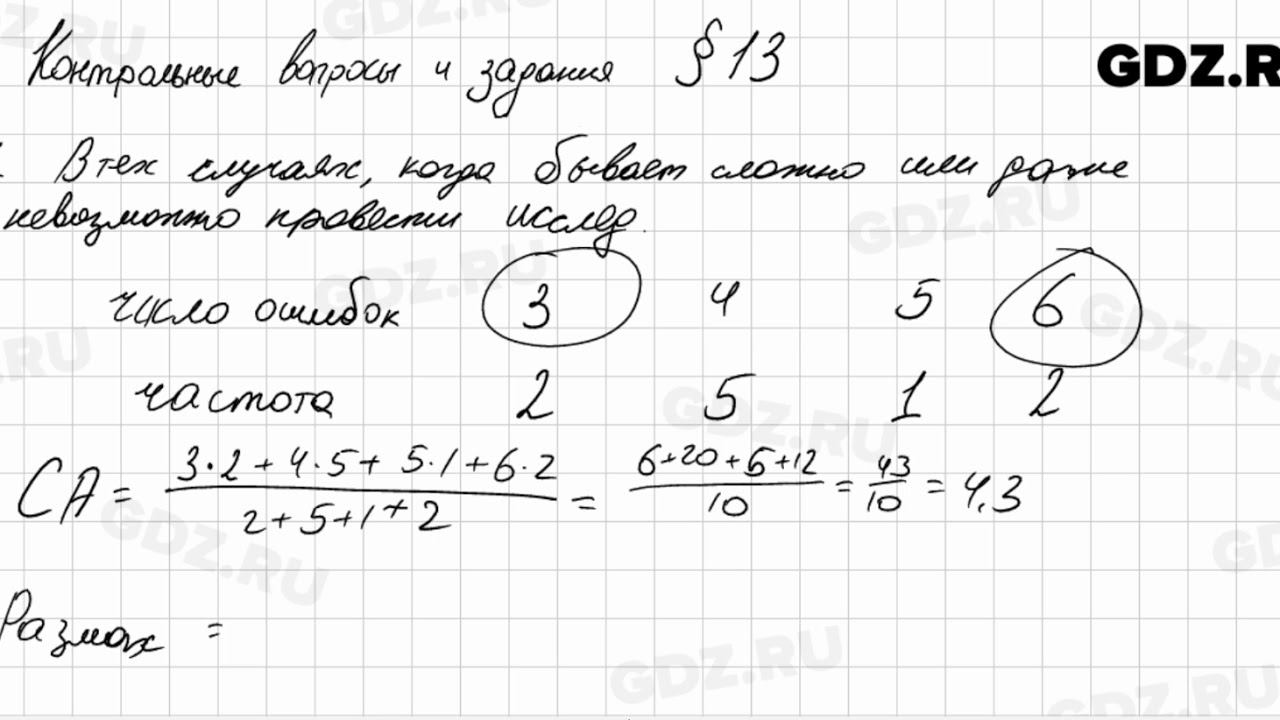 Контрольные вопросы и задания § 13
GDZ.R
В тех случаях, когда бывает сложно или даже
невозможно провести исслед.
число ошибок 3 4 5 6
частота 2 5 1 2
СА = (3·2 + 4·5 + 5·1 + 6·2)/(2+5+1+2) = (6+20+5+12)/10 = 43/10 = 4,3
Размах =
GDZ.RU